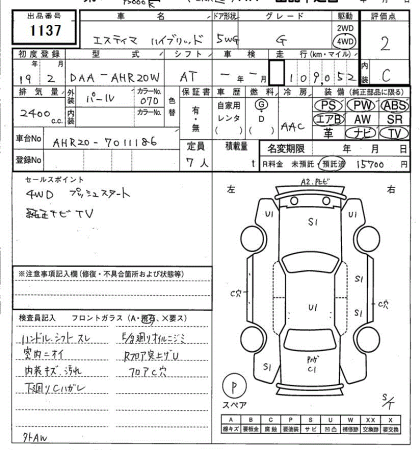 出品番号 車名 ドア形状 グレード 駆動 評価点
1137 エスティマ ハイブリッド 5WG G 2WD 4WD 2
初度登録 型式 シフト 車検 走行(km・マイル) 内装
19 2 DAA-AHR20W AT - 年 - 月 109052 C
排気量 外装 パール カラーNo. 070 色替 保証書 車歴 燃料 冷房 装備(純正部品に限る)
2400 c.c. 内装 カラーNo. 有・無 自家用 レンタ ( ) G D ( ) AAC PS PW ABS
エアB AW SR
革 ナビ TV
車台No AHR20-7011186 定員 7人 積載量 t 名変期限 年 月 日
登録No R料金 未預託 預託済 15700 円
セールスポイント
4WD プッシュスタート
純正ナビ TV
※注意事項記入欄(修復・不具合箇所および状態等)
検査員記入 フロントガラス(A・飛石、×要ス)
ハンドル.シフト スレ
室内ニオイ
内装キズ.汚れ
下廻りCハガレ
E/g廻りオイルニジミ
Rフロア突上ゲU
フロアC穴
外AW
左 右
A2.飛石
U1 S1 U1
C穴 U1 S1 C穴
S1
C1
P
スペア
S/T
A B C P S U W X XX
線キズ 要板金 腐蝕 要塗装 サビ 凹凸 補修跡 要交換 交換跡